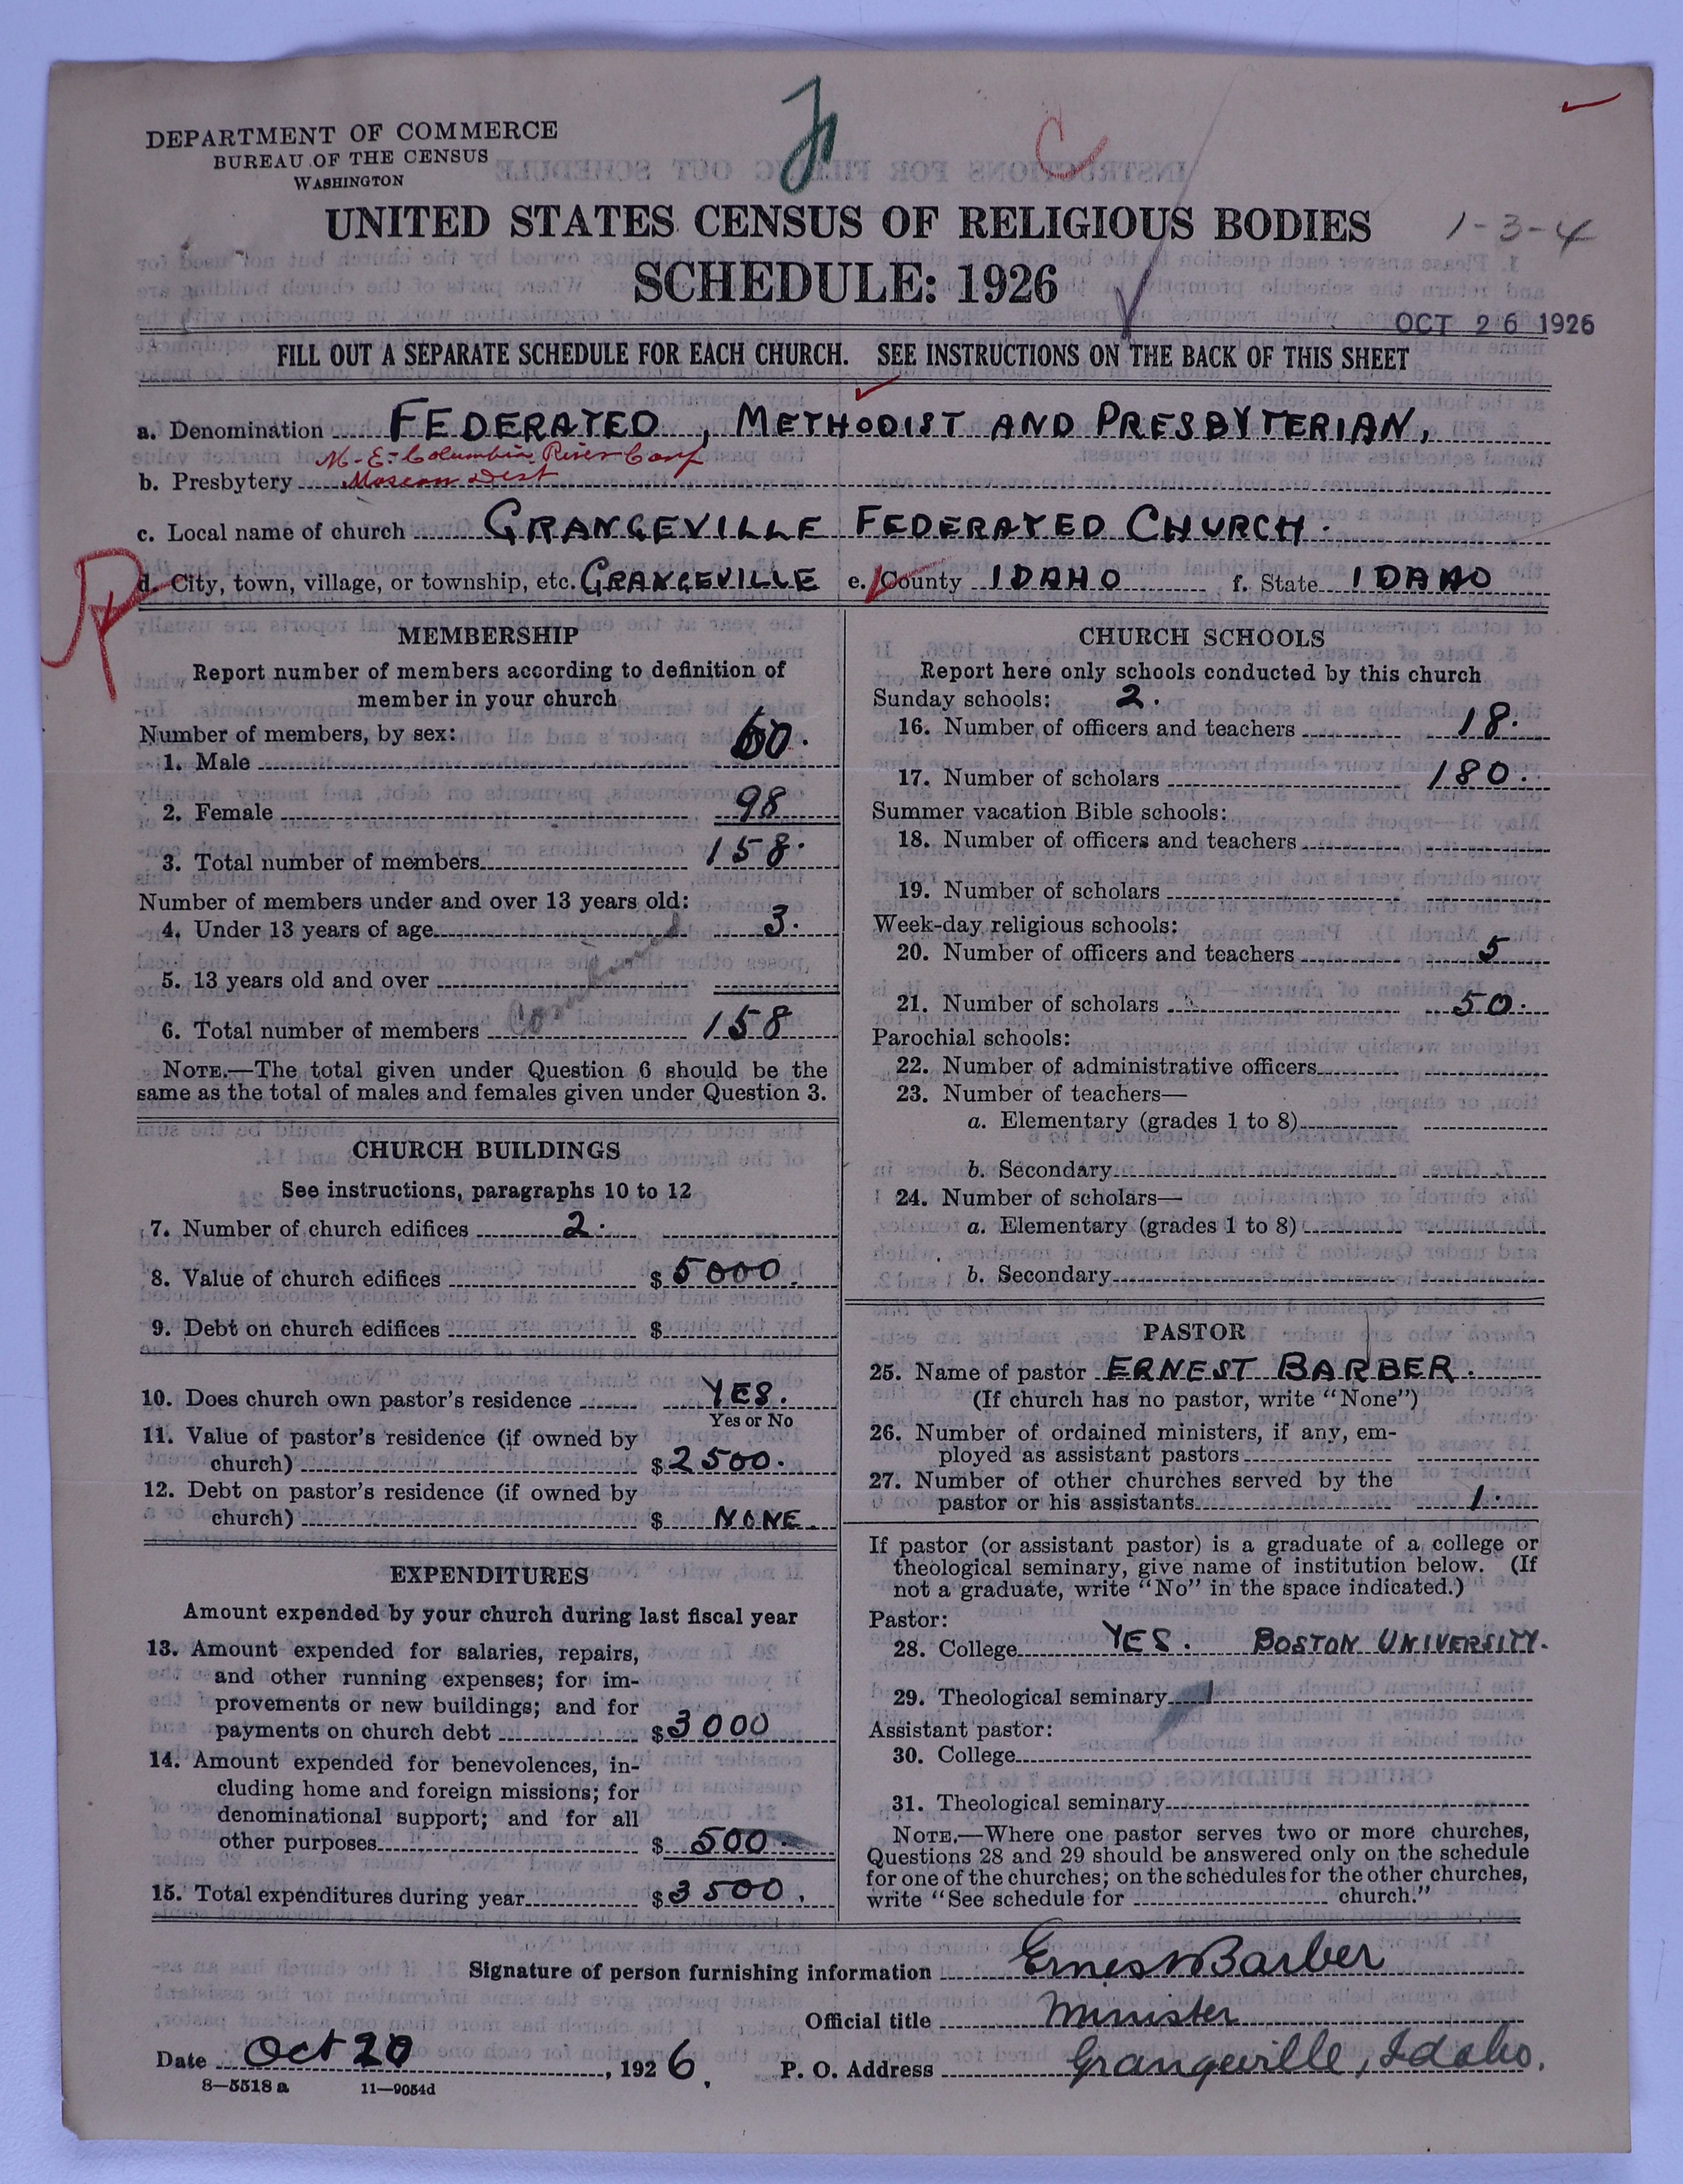 DEPARTMENT OF COMMERCE
BUREAU OF THE CENSUS
WASHINGTON
C
UNITED STATES CENSUS OF RELIGIOUS BODIES
1-3-4
SCHEDULE: 1926
OCT 26 1926
FILL OUT A SEPARATE SCHEDULE FOR EACH CHURCH. SEE INSTRUCTIONS ON THE BACK OF THIS SHEET
a. Denomination FEDERATED, METHODIST AND PRESBYTERIAN,
M-E-Columbia River Conf
b. Presbytery Moscow Dist
c. Local name of church GRANGEVILLE FEDERATED CHURCH.
d. City, town, village, or township, etc. GRANGEVILLE e. County IDAHO f. State IDAHO
MEMBERSHIP
Report number of members according to definition of
member in your church
Number of members, by sex:
1. Male 60.
2. Female 98
3. Total number of members 158.
Number of members under and over 13 years old:
4. Under 13 years of age 3.
5. 13 years old and over
6. Total number of members Combined 158
NOTE.—The total given under Question 6 should be the
same as the total of males and females given under Question 3.
CHURCH BUILDINGS
See instructions, paragraphs 10 to 12
7. Number of church edifices 2.
8. Value of church edifices $ 5000.
9. Debt on church edifices $
10. Does church own pastor's residence YES.
Yes or No
11. Value of pastor's residence (if owned by
church) $ 2500.
12. Debt on pastor's residence (if owned by
church) $ NONE.
EXPENDITURES
Amount expended by your church during last fiscal year
13. Amount expended for salaries, repairs,
and other running expenses; for im-
provements or new buildings; and for
payments on church debt $ 3000
14. Amount expended for benevolences, in-
cluding home and foreign missions; for
denominational support; and for all
other purposes $ 500.
15. Total expenditures during year $ 3500.
CHURCH SCHOOLS
Report here only schools conducted by this church
Sunday schools: 2.
16. Number of officers and teachers 18.
17. Number of scholars 180.
Summer vacation Bible schools:
18. Number of officers and teachers
19. Number of scholars
Week-day religious schools:
20. Number of officers and teachers 5
21. Number of scholars 50.
Parochial schools:
22. Number of administrative officers
23. Number of teachers—
a. Elementary (grades 1 to 8)
b. Secondary
24. Number of scholars—
a. Elementary (grades 1 to 8)
b. Secondary
PASTOR
25. Name of pastor ERNEST BARBER.
(If church has no pastor, write "None")
26. Number of ordained ministers, if any, em-
ployed as assistant pastors
27. Number of other churches served by the
pastor or his assistants 1.
If pastor (or assistant pastor) is a graduate of a college or
theological seminary, give name of institution below. (If
not a graduate, write "No" in the space indicated.)
Pastor:
28. College YES. BOSTON UNIVERSITY.
29. Theological seminary
Assistant pastor:
30. College
31. Theological seminary
NOTE.—Where one pastor serves two or more churches,
Questions 28 and 29 should be answered only on the schedule
for one of the churches; on the schedules for the other churches,
write "See schedule for church."
Signature of person furnishing information Ernest Barber
Official title Minister
Date Oct 20, 1926. P. O. Address Grangeville, Idaho.
8—5518 a 11—9054d